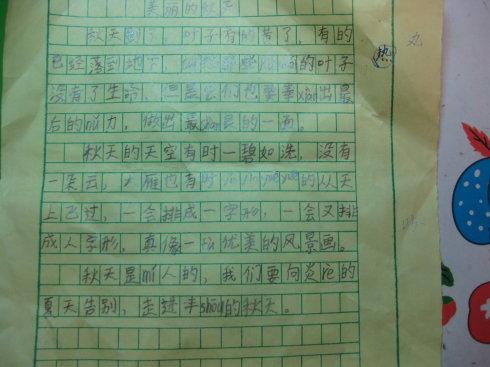 美丽的秋天
秋天到了，叶子有的黄了，有的
已经落到地下，的叶子
没有了生命，但是它们也要奉xiàn出最
后的mì力，做出最的一面。
秋天的天空有时一碧如洗，没有
一朵云，大雁也有时的从天
上飞过，一会排成一字形，一会又排
成人字形，真像一优美的风景画。
秋天是mí人的，我们要向炎的
夏天告别，走进丰shōu的秋天。
热
丸